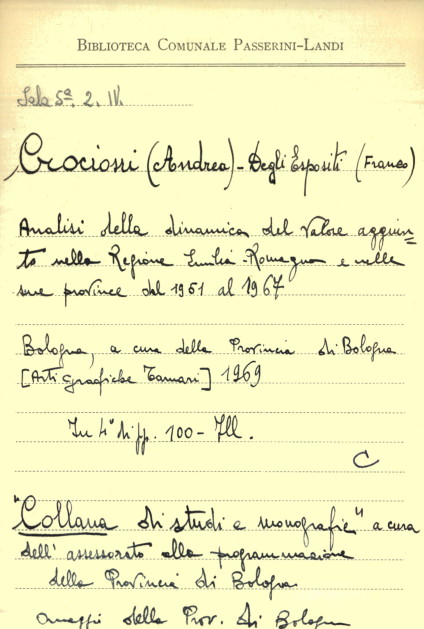 BIBLIOTECA COMUNALE PASSERINI-LANDI
Sala 5ª. 2. IV.
Crociоni (Andrea) - Degli Espositi (Franco)
Analisi della dinamica del valore aggiun=
to nella Regione Emilia-Romagna e nelle
sue province dal 1951 al 1967
Bologna, a cura della Provincia di Bologna
[Arti Grafiche Tamari] 1969
In 4° di pp. 100 - Ill.
C
"Collana di studi e monografie" a cura
dell'assessorato alla programmazione
della Provincia di Bologna
omaggio della Prov. di Bologna